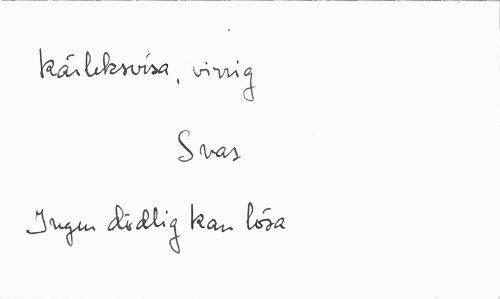 Kärleksvisa, virrig
Svar
Ingen dödlig kan lösa